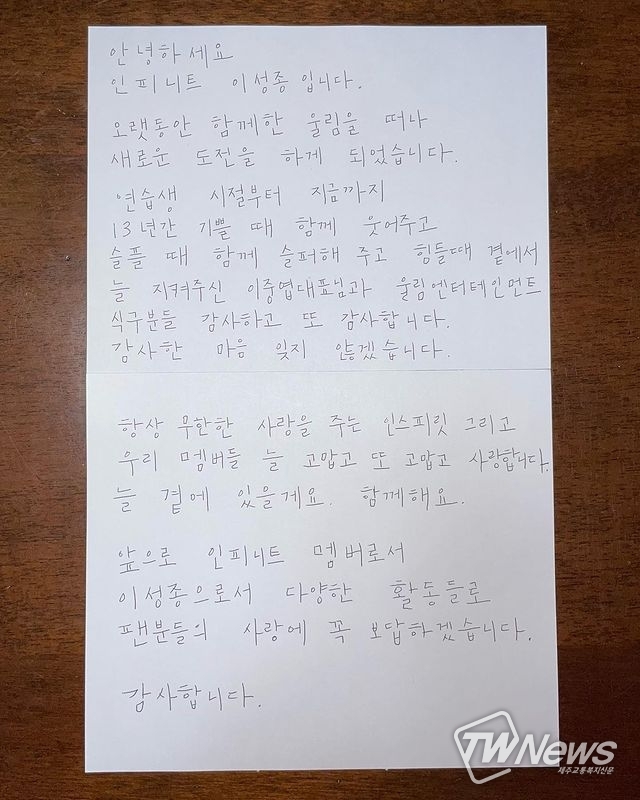 안녕하세요
인피니트 이성종입니다.
오랫동안 함께한 울림을 떠나
새로운 도전을 하게 되었습니다.
연습생 시절부터 지금까지
13년간 기쁠 때 함께 웃어주고
슬플 때 함께 슬퍼해 주고 힘들때 곁에서
늘 지켜주신 이중엽대표님과 울림엔터테인먼트
식구분들 감사하고 또 감사합니다.
감사한 마음 잊지 않겠습니다.
항상 무한한 사랑을 주는 인스피릿 그리고
우리 멤버들 늘 고맙고 또 고맙고 사랑합니다.
늘 곁에 있을게요. 함께해요.
앞으로 인피니트 멤버로서
이성종으로서 다양한 활동들로
팬분들의 사랑에 꼭 보답하겠습니다.
감사합니다.
TWNews
제주교통복지신문